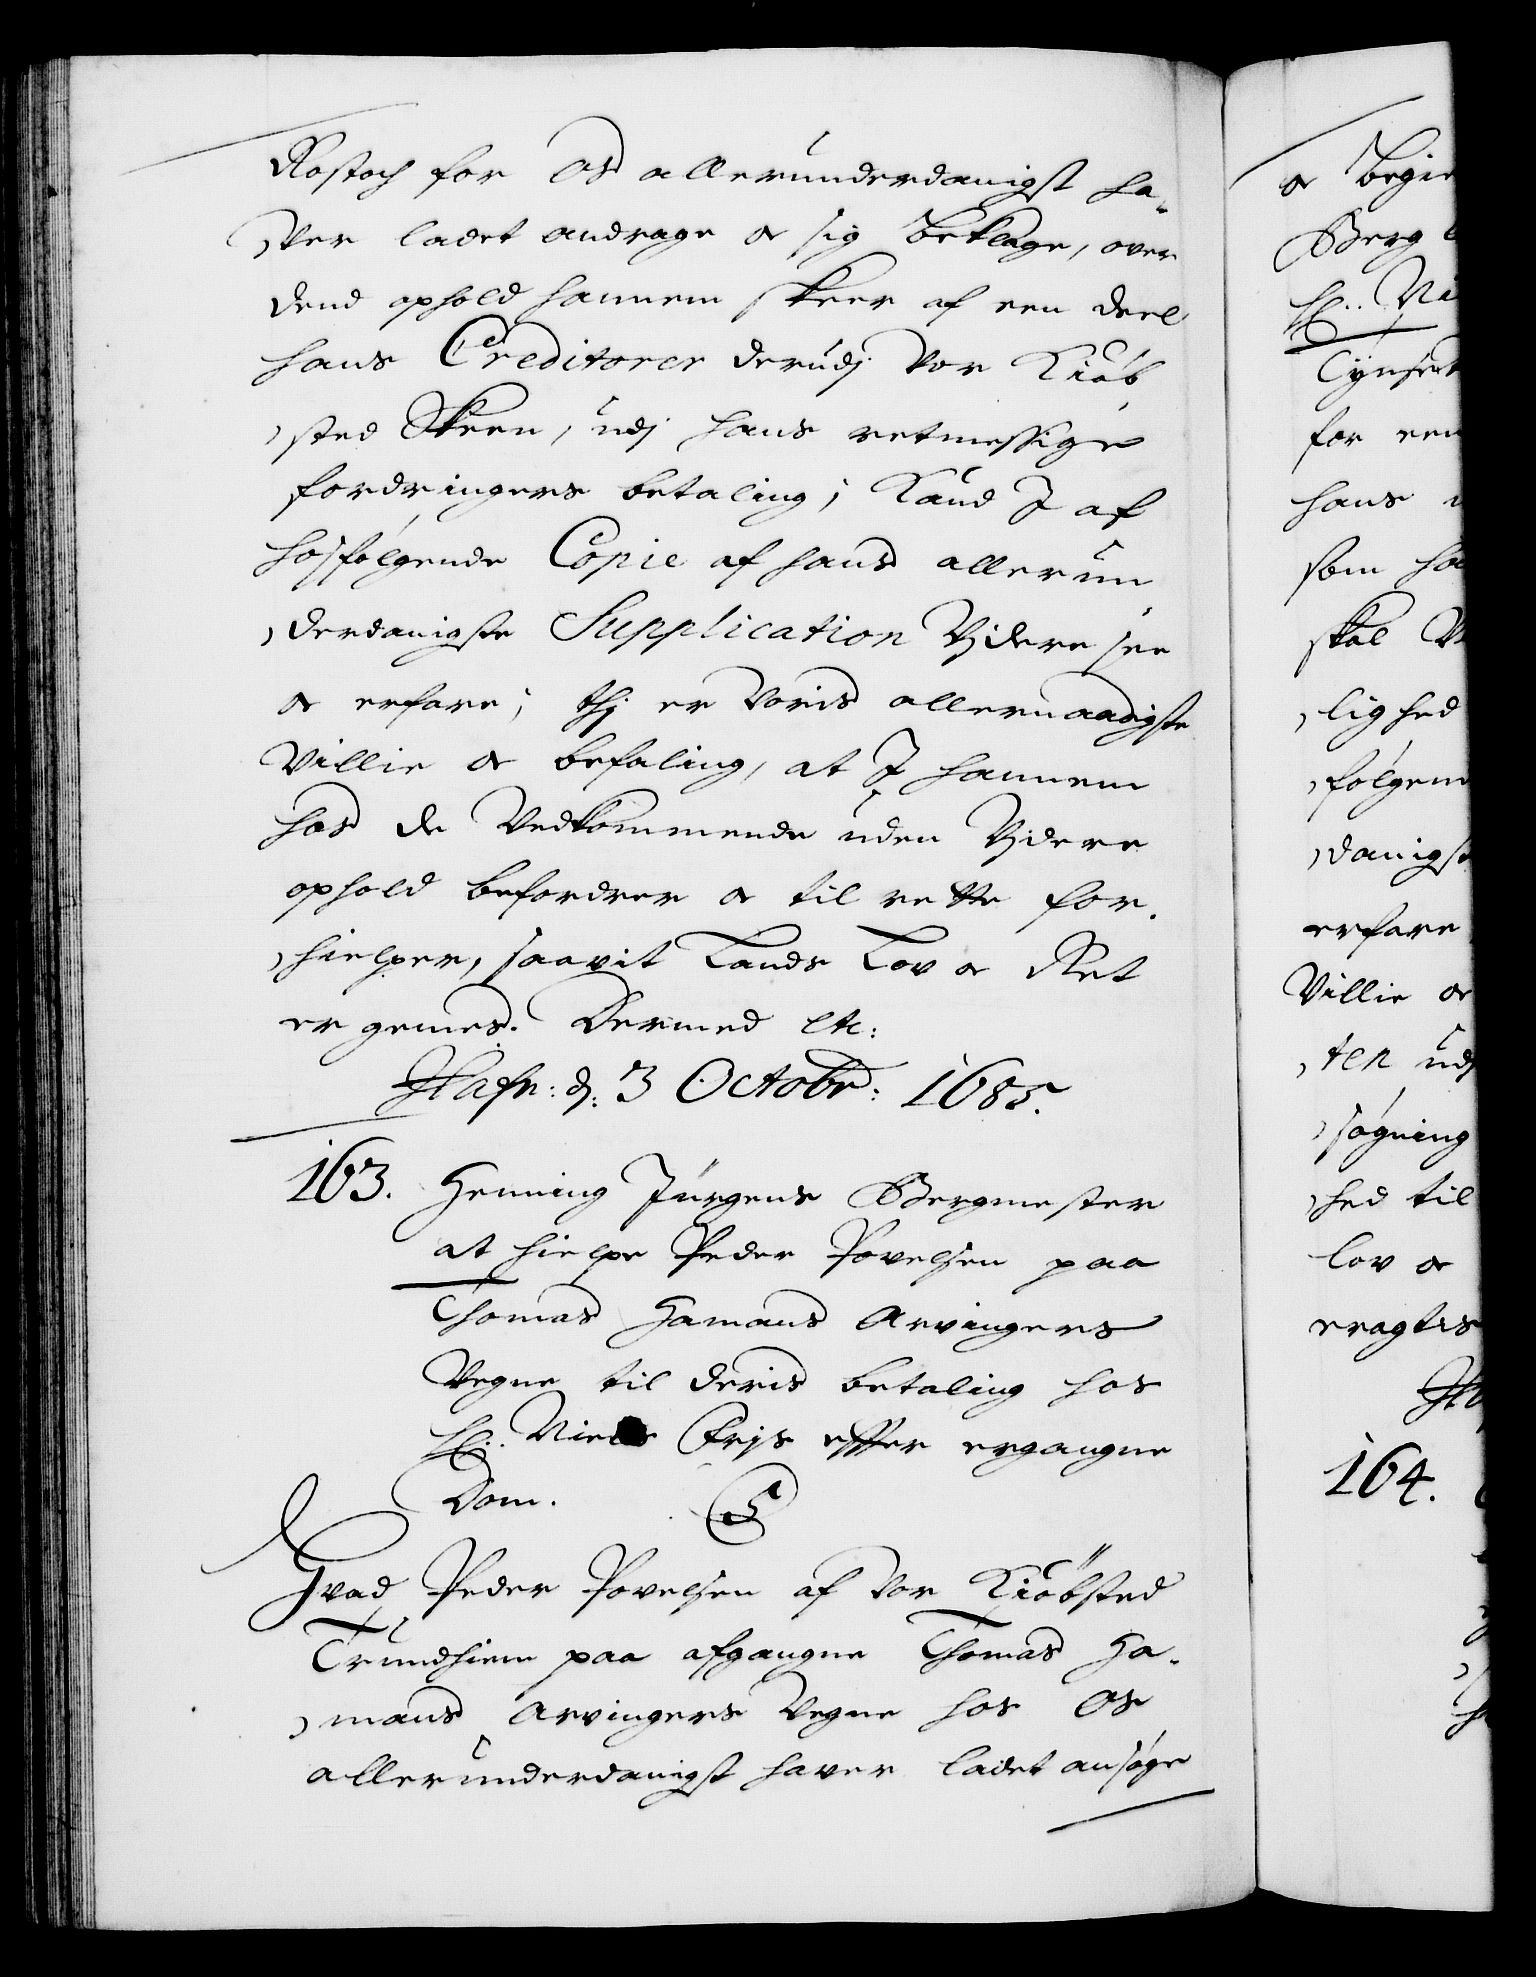 Rostoch for Os allerunderdanigst ha-
,ver ladet andrage oc sig beklage, over
dend ophold hannem skeer af een deel
hans Creditorer derudj vor Kiøb
,sted Skeen, udj hans retmessige
fordringers betaling; Kand I af
hosfølgende Copie af hans allerun
,derdanigste Supplication Vjdere see
oc erfare; thj er Voris allernaadigste
Villie oc befaling, at I hannem
hos de Vedkommende uden Vjdere
ophold befordrer oc til rette for-
,hielper, saavit Lands Lov oc Ret
er gemes. Dermed etc:
Hafn: d: 3 Octobr: 1685.
163. Henning Jürgens Bergmester
at hielpe Peder Povelsen paa
Thomas Hamans Arvingers
Vegne til deris betaling hos
Hr. Niels Frjs effter ergangne
Dom.
Hvad Peder Povelsen af Vor Kiøbsted
Trundhiem paa afgangne Thomas Ha-
,mans Arvingers Vegne hos Os
allerunderdanigst haver ladet ansøge
oc begie
Berg
Hr. Ni
Tynset
for een
hans
som ha
skal
,lighed
,følgen
,danigst
erfare
Villie oc
,ten udj
,søgning
,hed til
lov oc
eragtis
Ha
164.